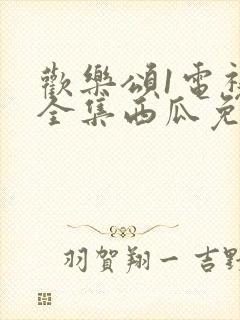 歡樂頌1電視
全集西瓜免
羽賀翔一 吉野